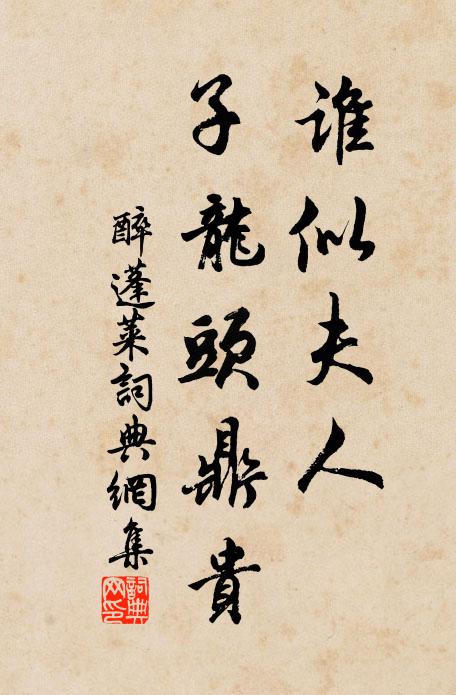 谁似夫人
子龍頭鼎貴
醉蓬莱詞典網集
詞典
网印